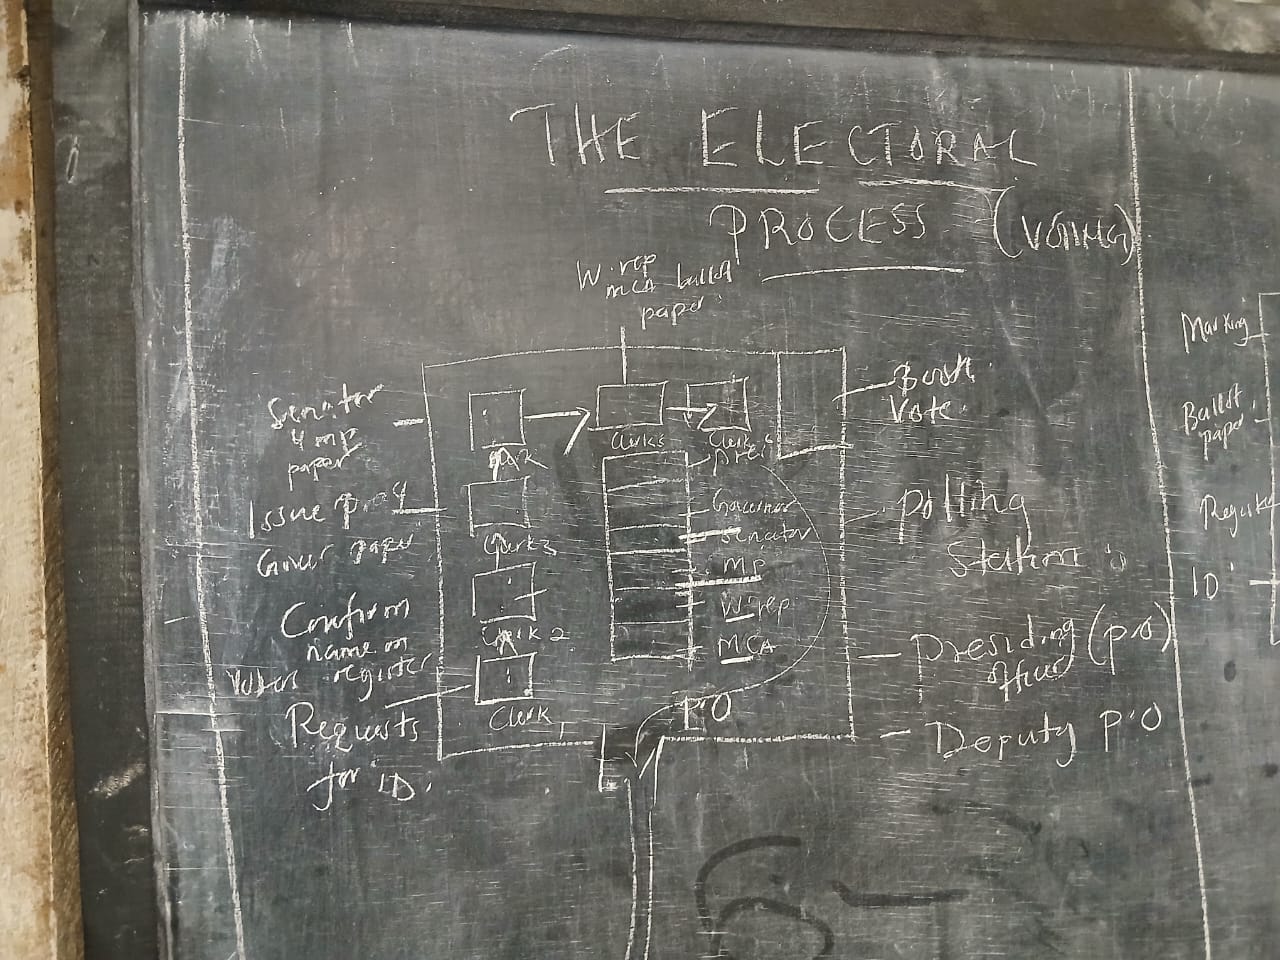 THE ELECTORAL
PROCESS (VOTING)
W.rep
MCA ballot
paper
Senator
& MP
paper
Issue
Gover paper
Confirm
name on
Voters register
Requests
for ID.
Clerk
Clerk 5
Clerk 6
Clerk 3
Clerk 2
Clerk 1
Pres
Governor
Senator
MP
W.rep
MCA
P.O
Vote
Polling
Station
Presiding (P.O)
Officer
Deputy P.O
Marking
Ballot
paper
ID